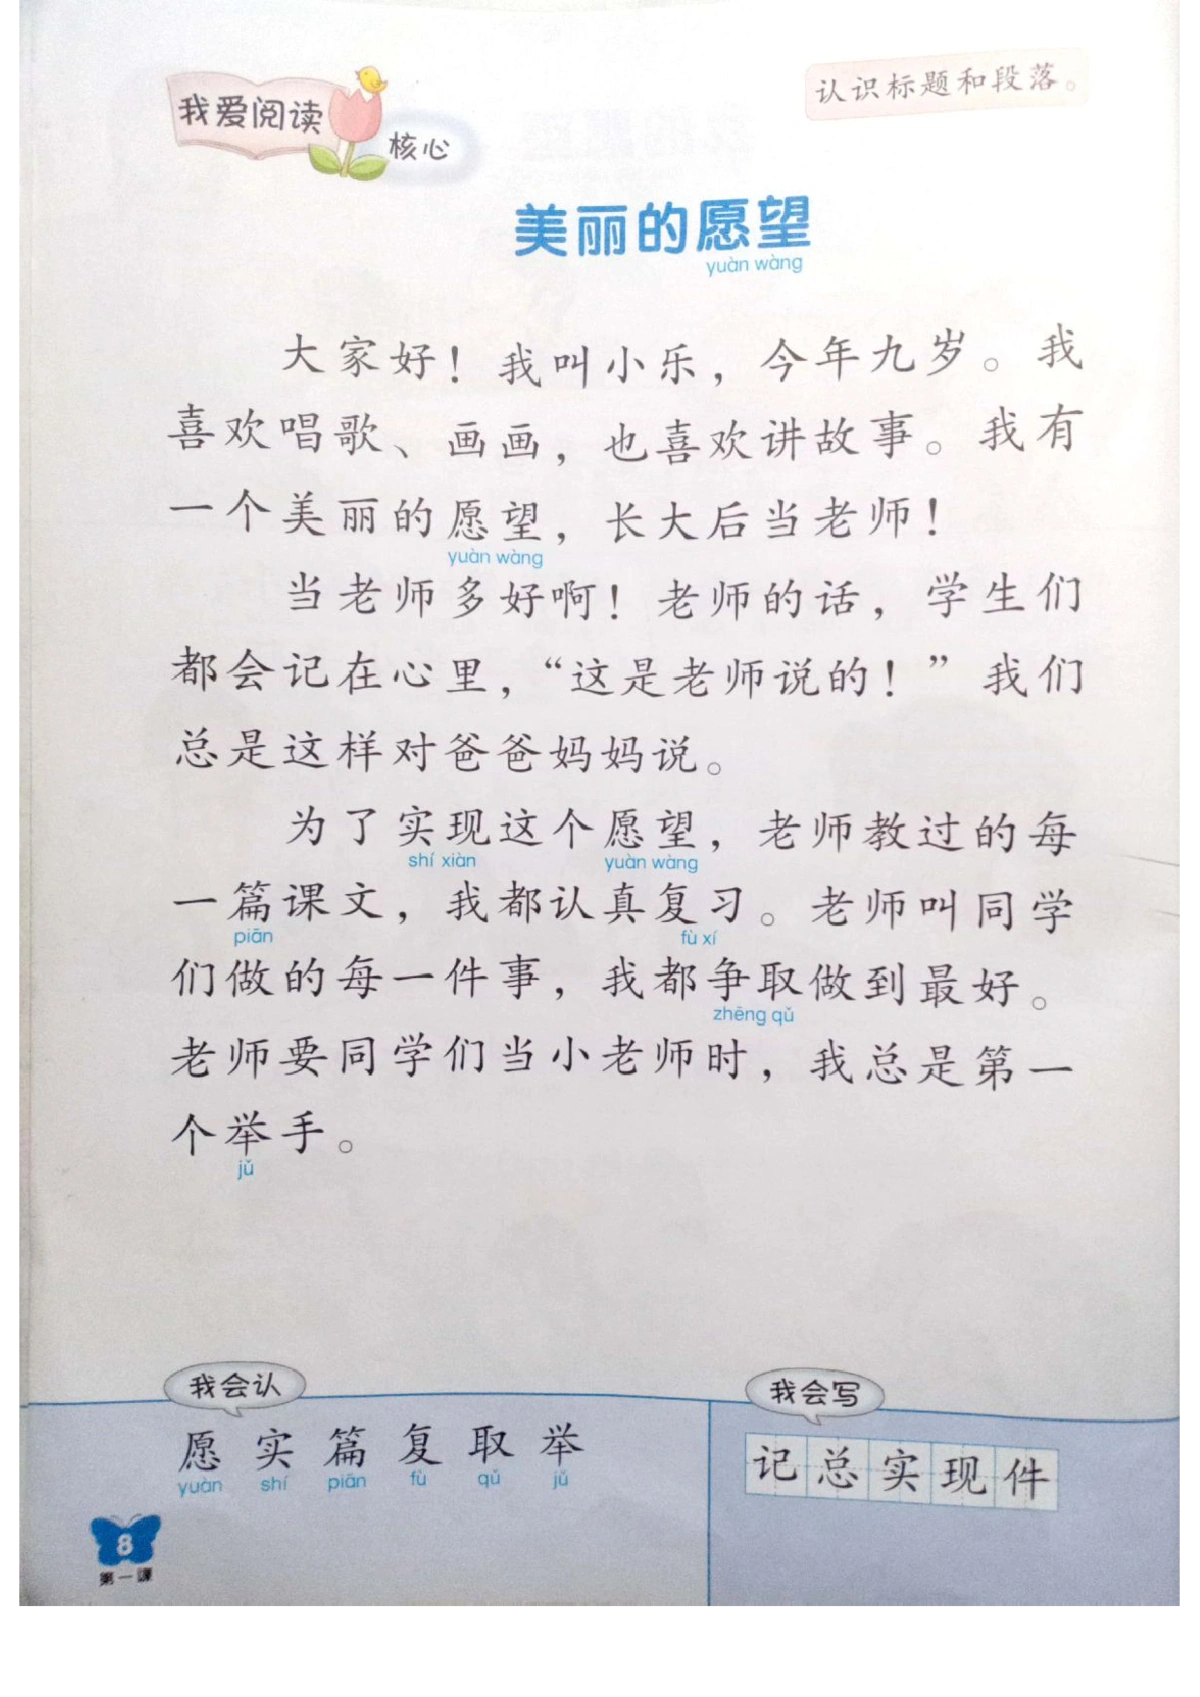 我爱阅读
核心
认识标题和段落。
美丽的愿望
yuàn wàng
大家好！我叫小乐，今年九岁。我
喜欢唱歌、画画，也喜欢讲故事。我有
一个美丽的愿望，长大后当老师！
yuàn wàng
当老师多好啊！老师的话，学生们
都会记在心里，“这是老师说的！”我们
总是这样对爸爸妈妈说。
为了实现这个愿望，老师教过的每
shí xiàn yuàn wàng
一篇课文，我都认真复习。老师叫同学
piān fù xí
们做的每一件事，我都争取做到最好。
zhēng qǔ
老师要同学们当小老师时，我总是第一
个举手。
jǔ
我会认
愿 实 篇 复 取 举
yuàn shí piān fù qǔ jǔ
我会写
记 总 实 现 件
8
第一课